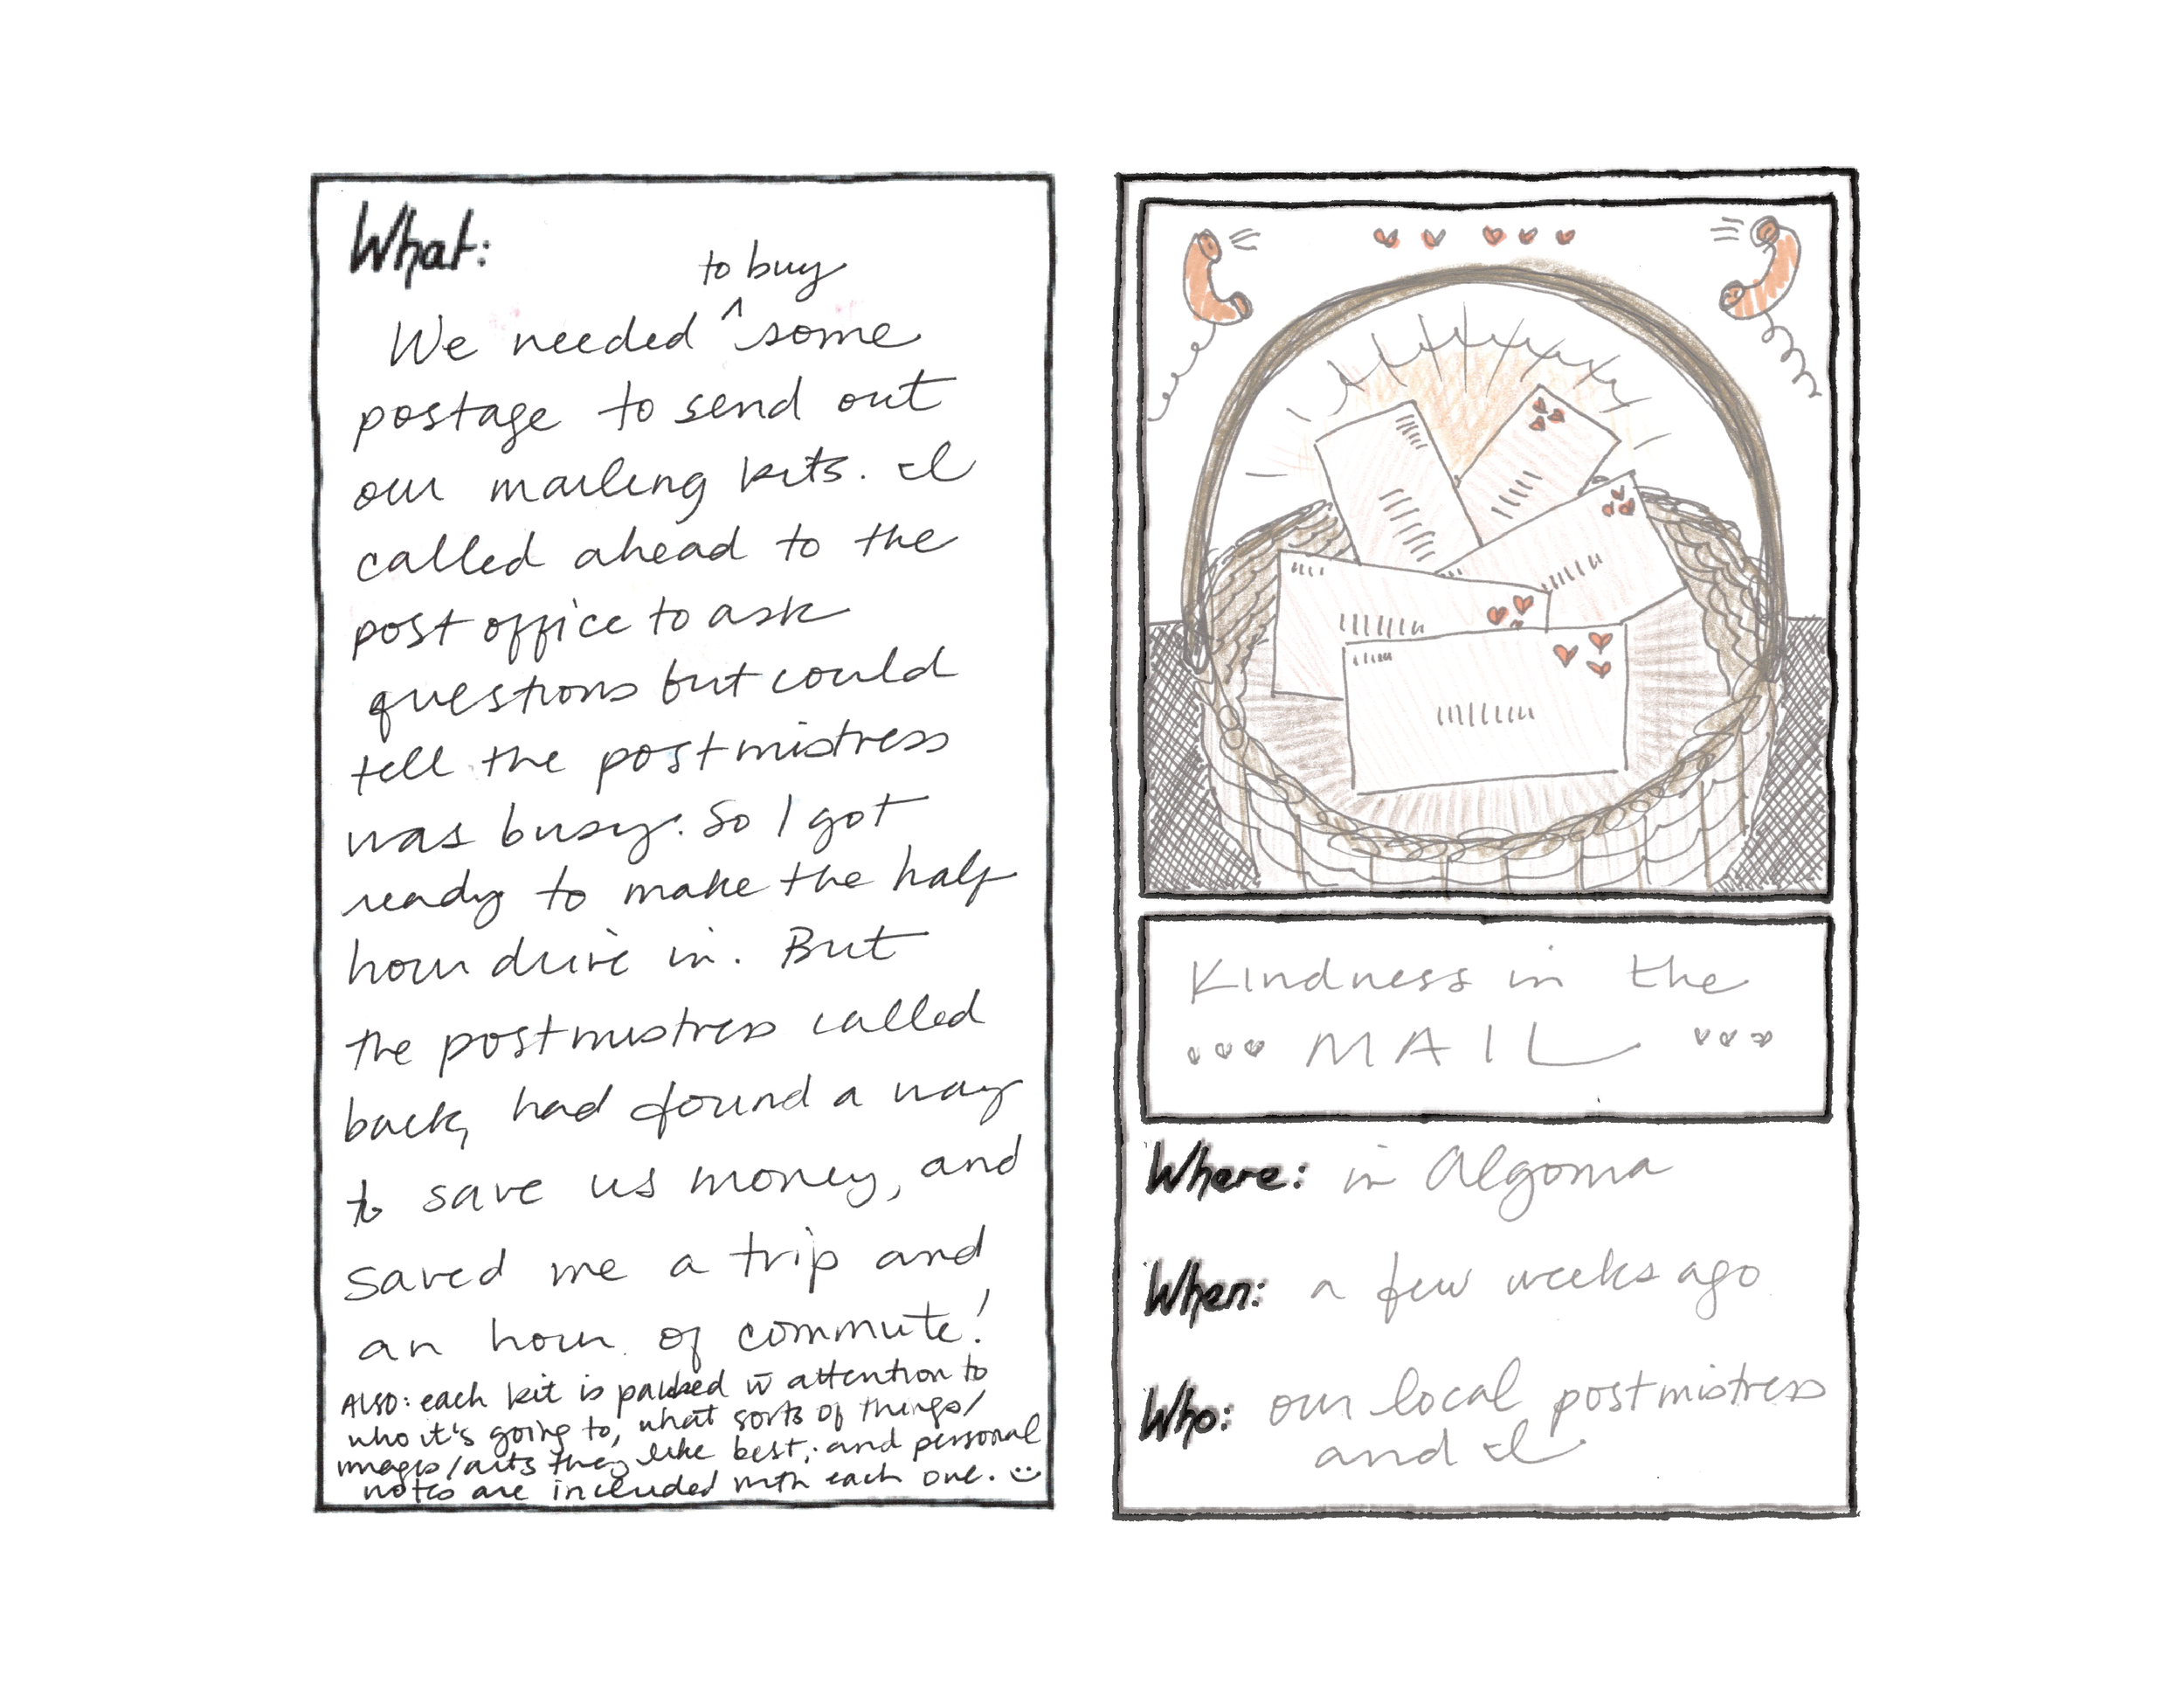 What:
to buy
We needed ^ some
postage to send out
our mailing kits. I
called ahead to the
post office to ask
questions but could
tell the postmistress
was busy. So I got
ready to make the half
hour drive in. But
the postmistress called
back, had found a way
to save us money, and
saved me a trip and
an hour of commute!
ALSO: each kit is packed w̄ attention to
who it's going to, what sorts of things/
images/arts they like best, and personal
notes are included with each one. :)
Kindness in the
MAIL
Where: in Algoma
When: a few weeks ago
Who: our local postmistress
and I